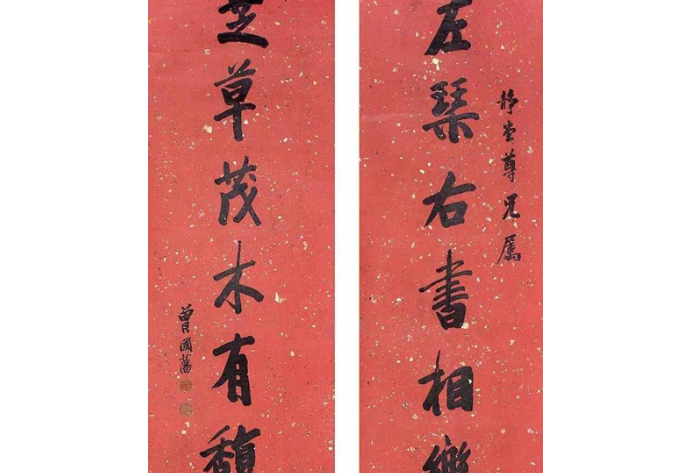 静堂尊兄属
左琴右書相樂
芝草茂木有馥
曾國藩